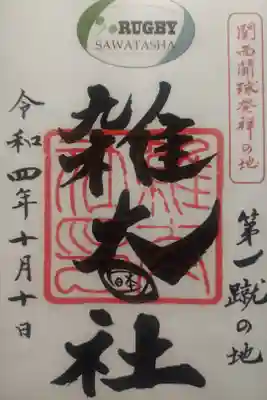 RUGBY
SAWATASHA
関西開球発祥の地
第一蹴の地
雑太社
日本
令和四年十月十日